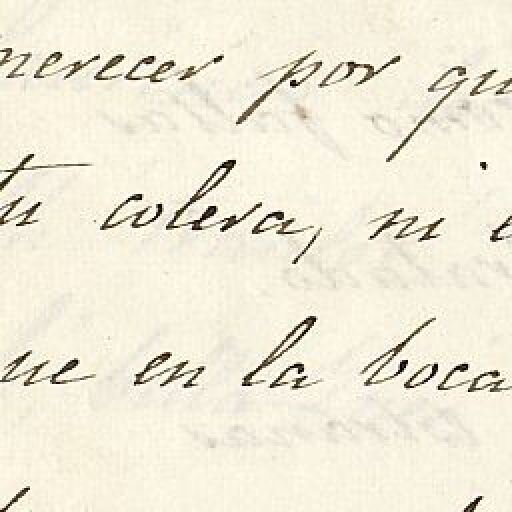 merecer por qu
tu colera, ni e
ue en la boca